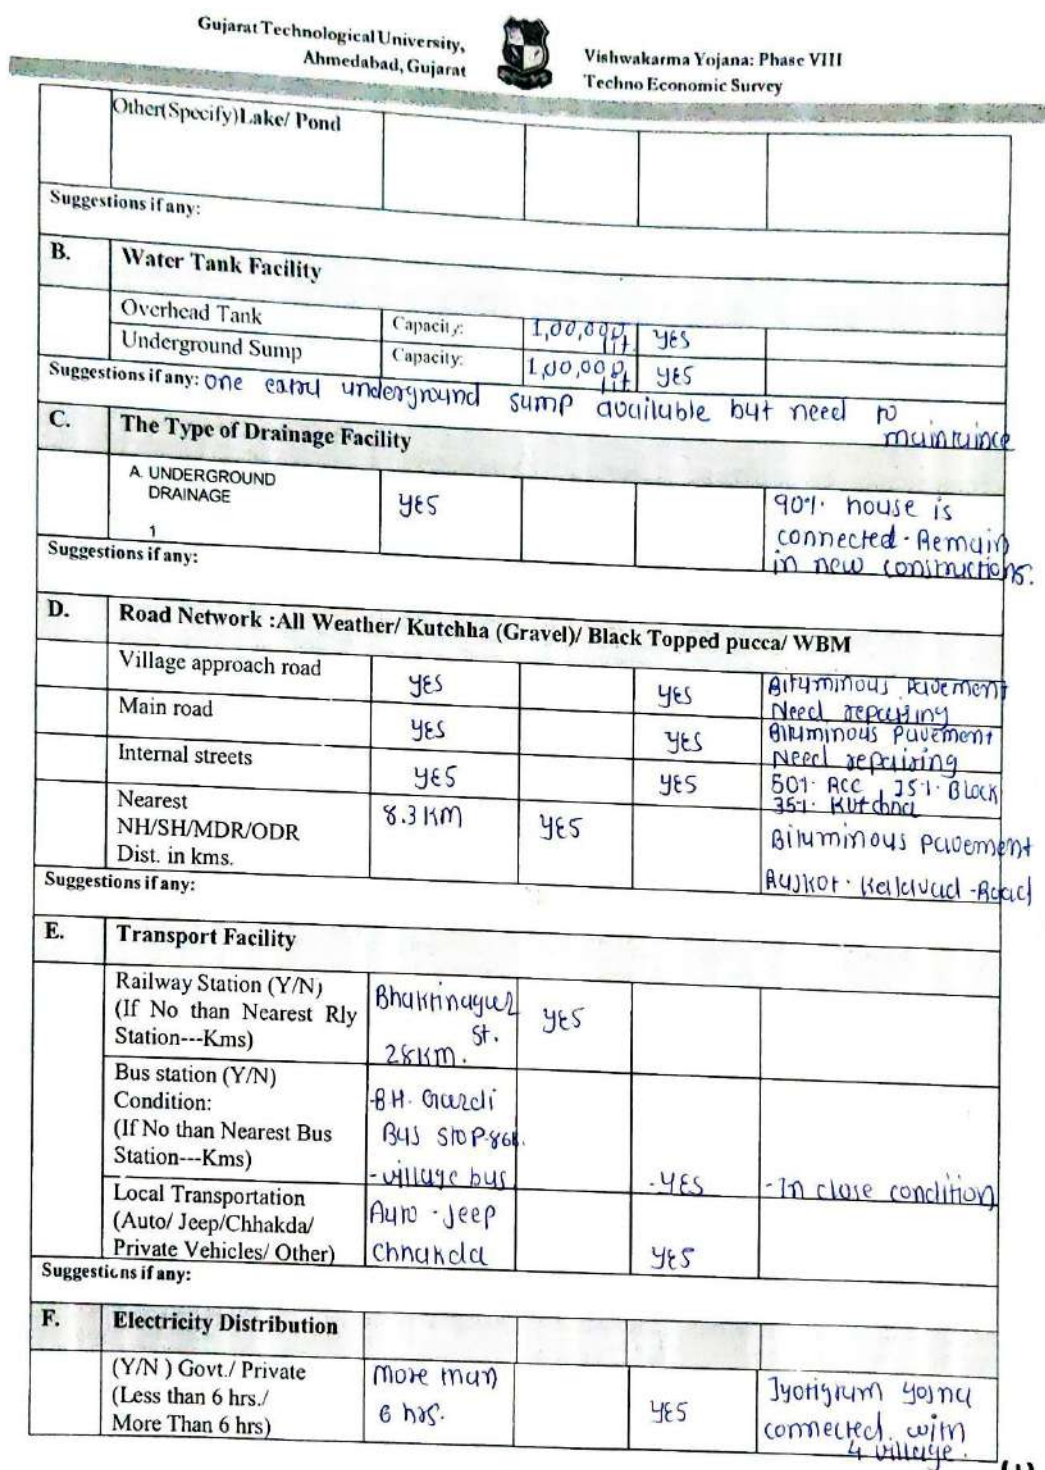 Gujarat Technological University,
Ahmedabad, Gujarat
Vishwakarma Yojana: Phase VIII
Techno Economic Survey
Other(Specify)Lake/ Pond
Suggestions if any:
B. Water Tank Facility
Overhead Tank Capacity: 1,00,000 lit. YES
Underground Sump Capacity: 1,00,000 lit YES
Suggestions if any: one underground sump available but need to
maintaince
C. The Type of Drainage Facility
A. UNDERGROUND
DRAINAGE
1
YES
90%. house is
connected. Remain
in new constructions.
Suggestions if any:
D. Road Network :All Weather/ Kutchha (Gravel)/ Black Topped pucca/ WBM
Village approach road YES YES Bituminous pavement
Need repairing
Main road YES YES Bituminous pavement
Need repairing
Internal streets YES YES 50%. RCC Block
35%. Kutchha
Nearest
NH/SH/MDR/ODR
Dist. in kms.
8.3 KM YES
Bituminous pavement
Rajkot - Kalavad - Road
Suggestions if any:
E. Transport Facility
Railway Station (Y/N)
(If No than Nearest Rly
Station---Kms)
Bhaktinagar
St.
28 Km.
YES
Bus station (Y/N)
Condition:
(If No than Nearest Bus
Station---Kms)
-B.H. Gardi
Bus stop
- village bus
- YES
- In close condition
Local Transportation
(Auto/ Jeep/Chhakda/
Private Vehicles/ Other)
Auto - Jeep
Chhakda
YES
Suggestions if any:
F. Electricity Distribution
(Y/N ) Govt./ Private
(Less than 6 hrs./
More Than 6 hrs)
More than
6 hrs.
YES
Jyotigram yojna
connected with
4 village.